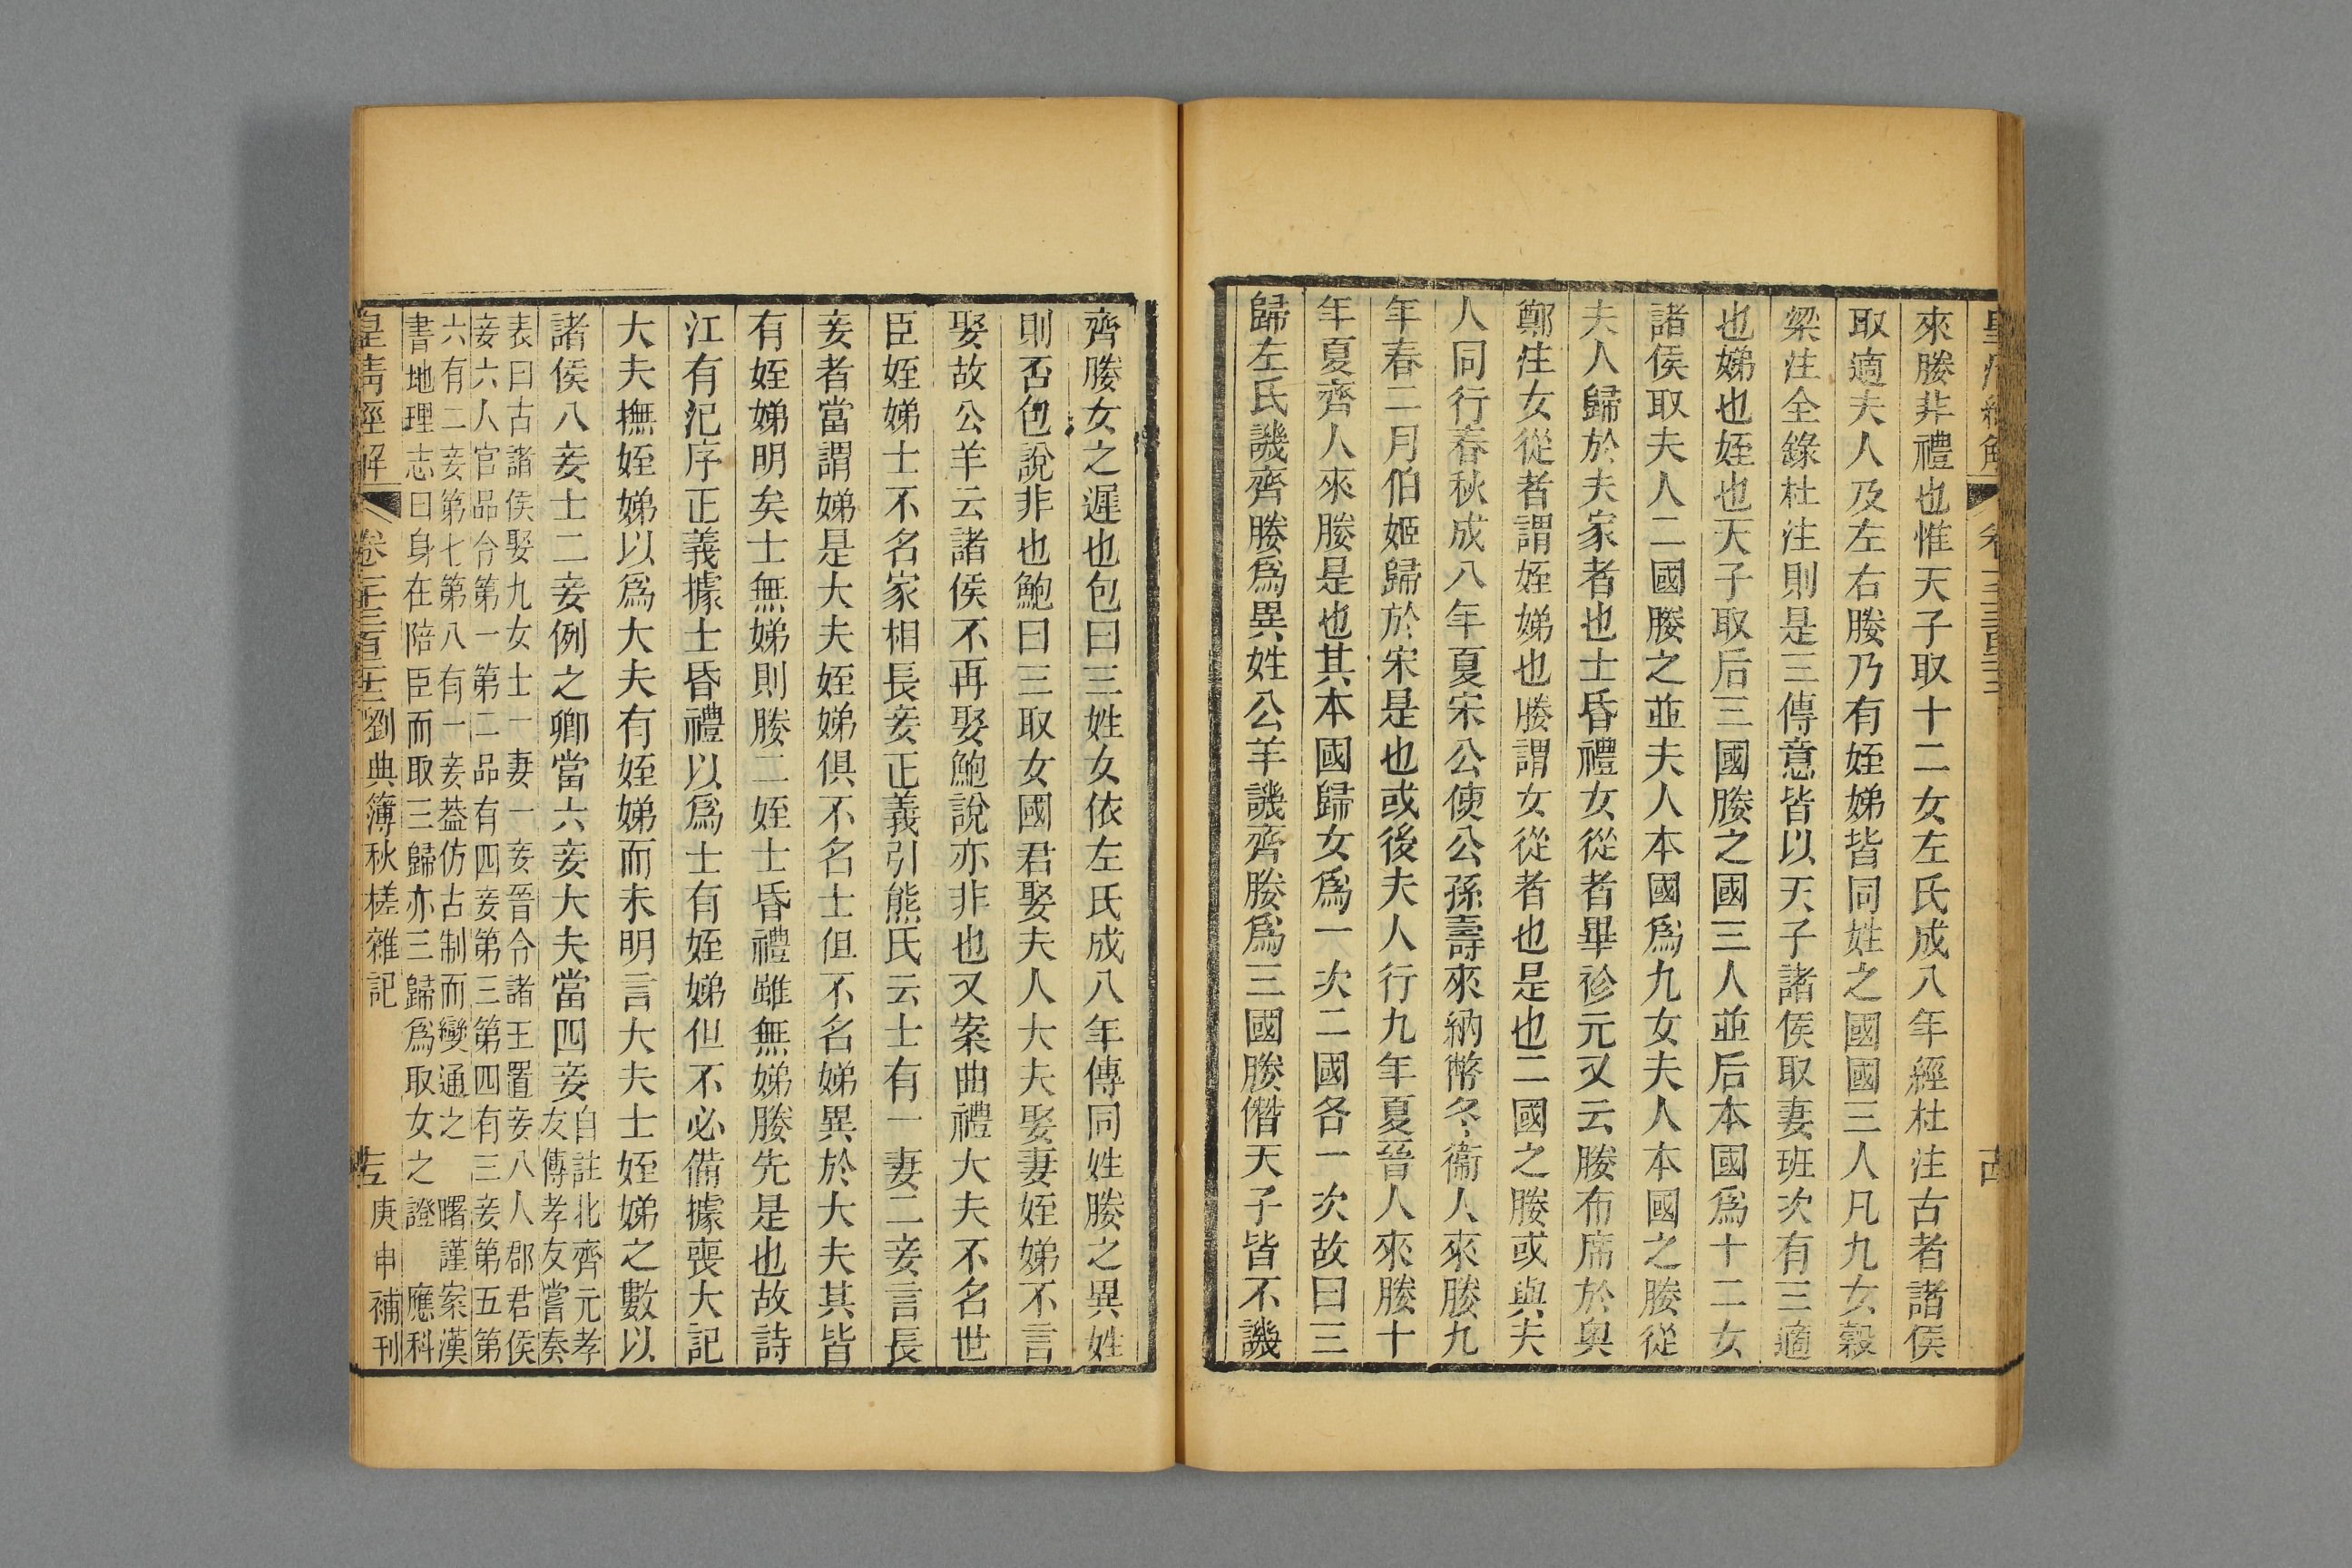 來媵非禮也惟天子取十二女左氏成八年經杜注古者諸侯
取適夫人及左右媵乃有姪娣皆同姓之國國三人凡九女穀
梁注全錄杜注則是三傳意皆以天子諸侯取妻班次有三適
也娣也姪也天子取后三國媵之國三人並后本國爲十二女
諸侯取夫人二國媵之並夫人本國爲九女夫人本國之媵從
夫人歸於夫家者也士昏禮女從者畢袗元又云媵布席於奧
鄭注女從者謂姪娣也媵謂女從者也是也二國之媵或與夫
人同行春秋成八年夏宋公使公孫壽來納幣冬衞人來媵九
年春二月伯姬歸於宋是也或後夫人行九年夏晉人來媵十
年夏齊人來媵是也其本國歸女爲一次二國各一次故曰三
歸左氏譏齊媵爲異姓公羊譏齊媵爲三國媵僭天子皆不譏
齊媵女之遲也包曰三姓女依左氏成八年傳同姓媵之異姓
則否包說非也鮑曰三取女國君娶夫人大夫娶妻姪娣不言
娶故公羊云諸侯不再娶鮑說亦非也又案曲禮大夫不名世
臣姪娣士不名家相長妾正義引熊氏云士有一妻二妾言長
妾者當謂娣是大夫姪娣俱不名士但不名娣異於大夫其皆
有姪娣明矣士無娣則媵二姪士昏禮雖無娣媵先是也故詩
江有汜序正義據士昏禮以爲士有姪娣但不必備據喪大記
大夫撫姪娣以爲大夫有姪娣而未明言大夫士姪娣之數以
諸侯八妾士二妾例之卿當六妾大夫當四妾
自註北齊元孝
友傳孝友嘗奏
表曰古諸侯娶九女士一妻一妾晉令諸王置妾八人郡君侯
妾六人官品令第一第二品有四妾第三第四有三妾第五第
六有二妾第七第八有一妾葢仿古制而變通之 曙謹案漢
書地理志曰身在陪臣而取三歸亦三歸爲取女之證 應科
皇清經解 卷一千三百二十三 劉典簿秋槎雜記 十五 庚申補刊